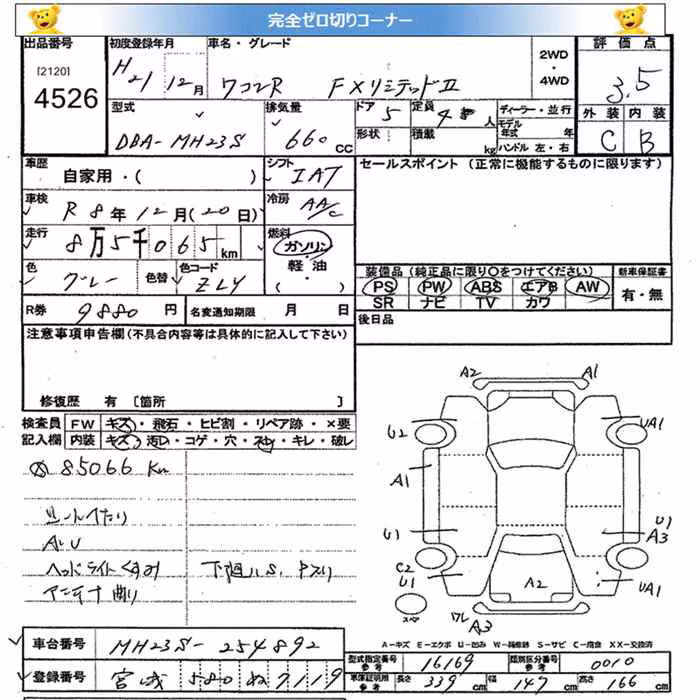 完全ゼロ切りコーナー
出品番号 初度登録年月 車名・グレード 2WD・4WD 評価点
[2120] 4526 H21 12月 ワゴンR FXリミテッドⅡ 3.5
型式 排気量 ドア 5 定員 4 人 ディーラー・並行 外装 内装
DBA-MH23S 660 CC 形状 積載 kg モデル年式 年 ハンドル 左・右 C B
車歴 自家用・( ) シフト IAT セールスポイント (正常に機能するものに限ります)
車検 R8年12月(20日) 冷房 AA/C
走行 8万5千065km 燃料 ガソリン・軽油・( )
色 グレー 色替 色コード ZLY
装備品 (純正品に限り○をつけてください) 新車保証書
PS PW ABS エアB AW 有・無
SR ナビ TV カワ
R券 9880円 名変通知期限 月 日 後日品
注意事項申告欄(不具合内容等は具体的に記入して下さい)
修復歴 有 [箇所 ]
検査員記入欄 FW キズ・飛石・ヒビ割・リペア跡・×要
内装 キズ・汚レ・コゲ・穴・スレ・キレ・破レ
85066 Km
シートへたり
AU
ヘッドライトくすみ 下廻りS.サビ
アンテナ曲り
A2 A1
U2 UA1
A1
U1 U1 A3
C2 U1 UA1
A2
スペア ワレ A3
A-キズ E-エクボ U-凹み W-補修跡 S-サビ C-腐食 XX-交換済
車台番号 MH23S-254892
登録番号 宮城 580 ぬ 7119
型式指定番号 参考 16169 類別区分番号 参考 0010
車庫証明用 参考 長さ 339 cm 幅 147 cm 高さ 166 cm